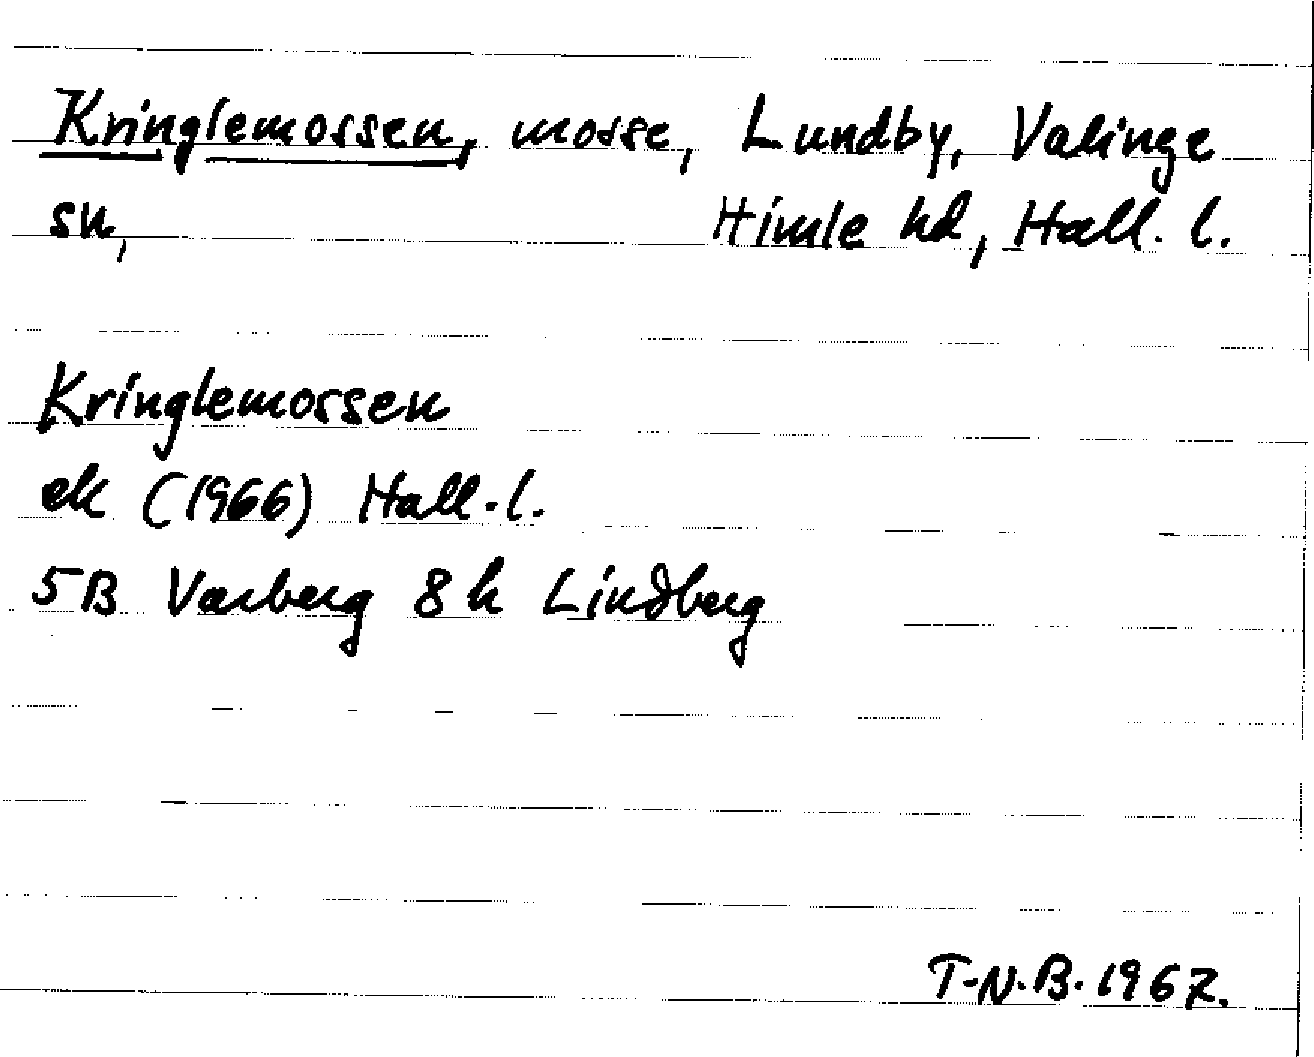 Kringlemossen, mosse, Lundby, Valinge
sn, Himle hd, Hall. l.
Kringlemossen
ek (1966) Hall. l.
5B Varberg 8h Lindberg
T-N.B. 1967.